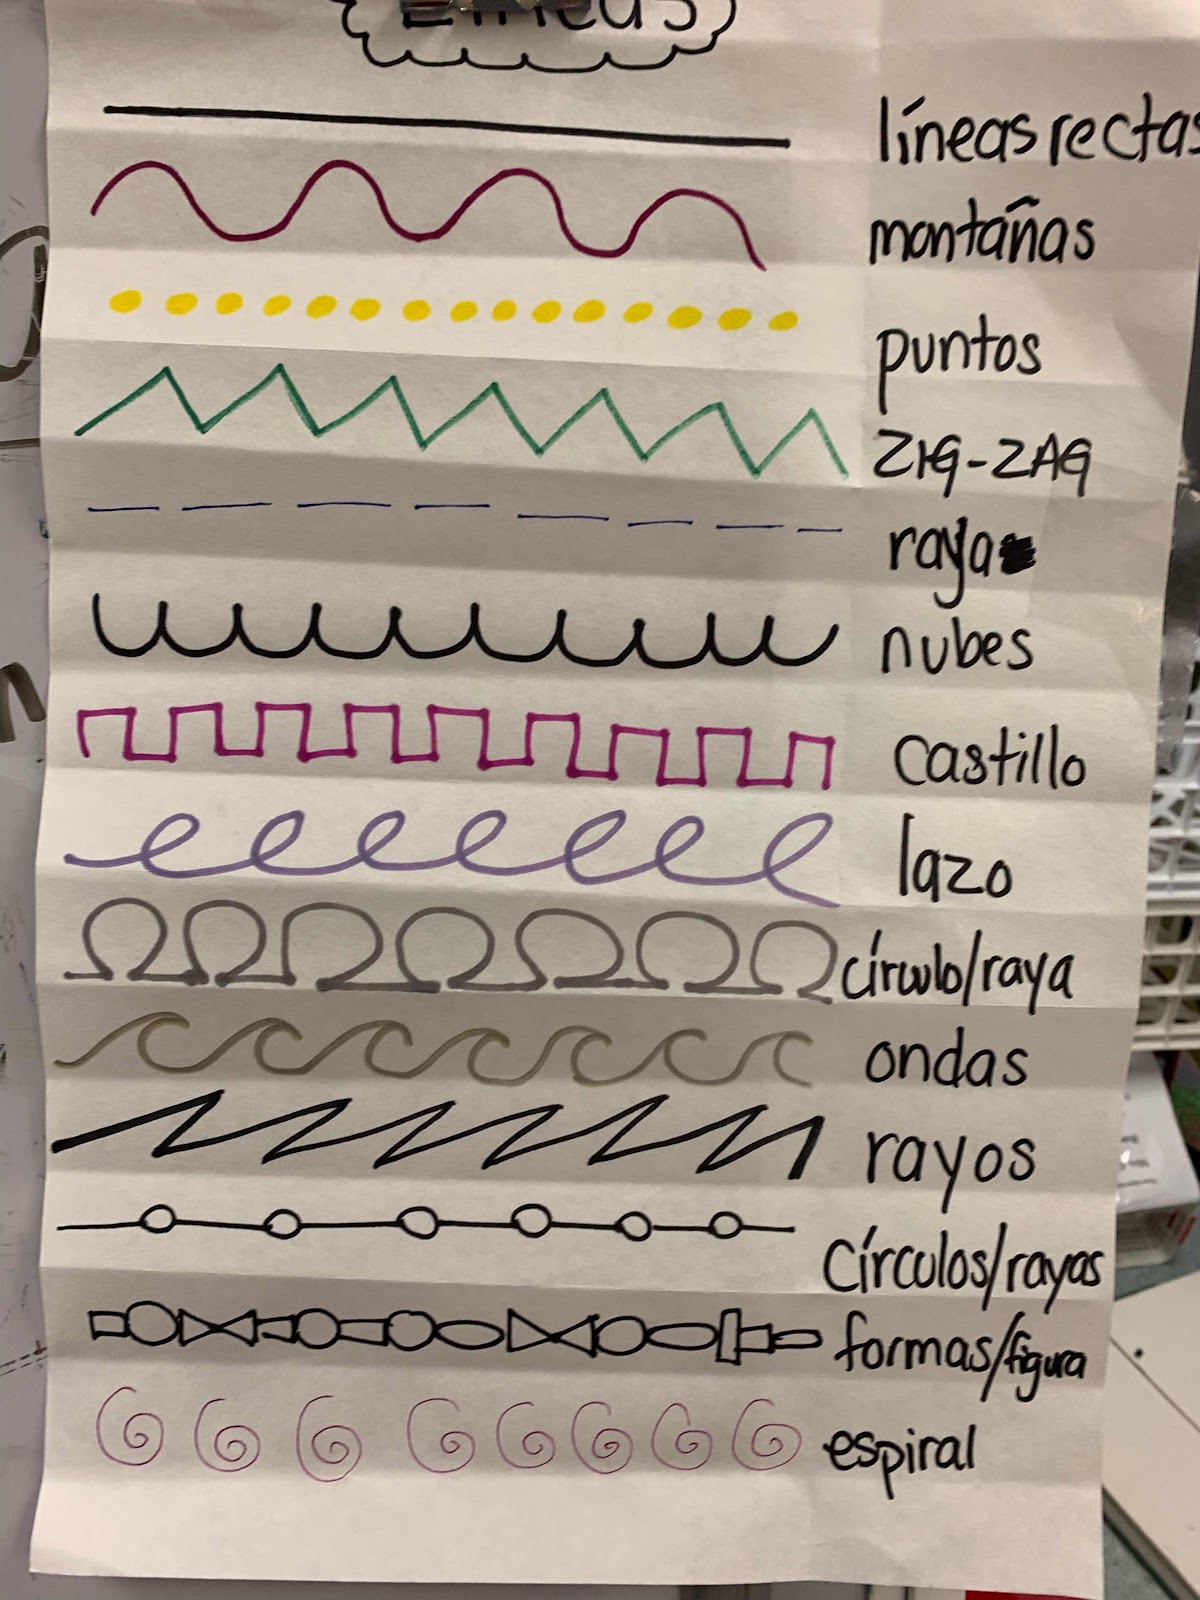 Líneas
líneas rectas
montañas
puntos
ZIG-ZAG
raya
nubes
castillo
lazo
círculo/raya
ondas
rayos
Círculos/rayas
formas/figura
espiral